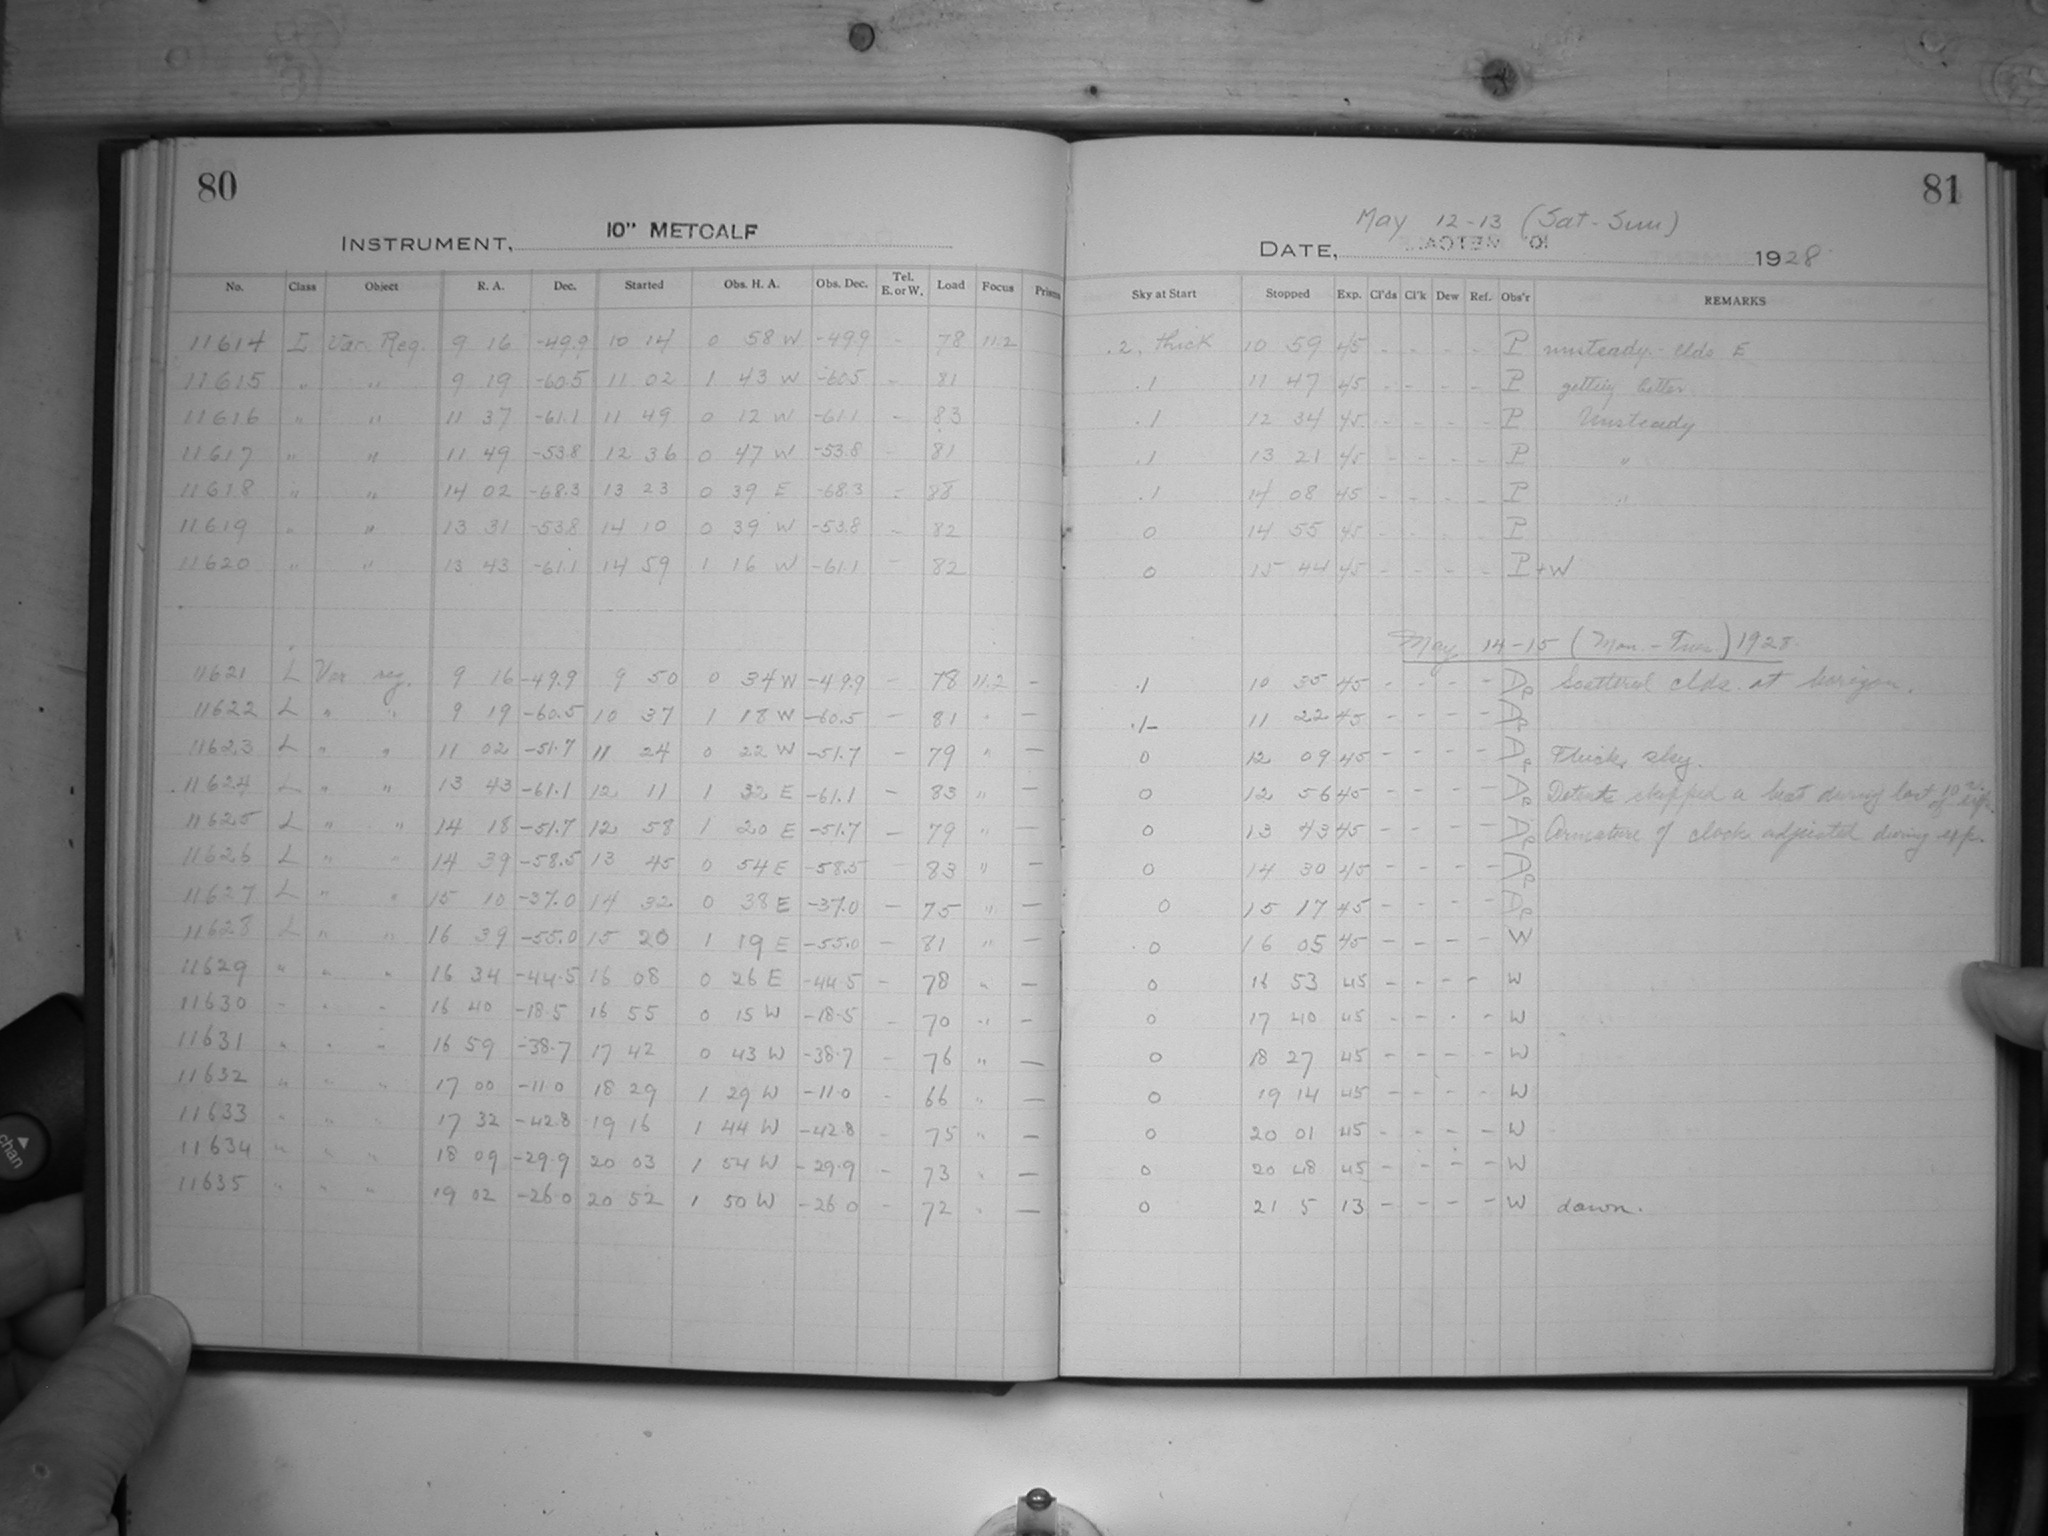 80
INSTRUMENT, 10" METCALF
No. Class Object R. A. Dec. Started Obs. H. A. Obs. Dec. Tel. E. or W. Load Focus Prisms
11614 I Var. Reg. 9 16 -49.9 10 14 0 58 W -49.9 - 78 11.2
11615 " " 9 19 -60.5 11 02 1 43 W -60.5 - 81
11616 " " 11 37 -61.1 11 49 0 12 W -61.1 - 83
11617 " " 11 49 -53.8 12 36 0 47 W -53.8 - 81
11618 " " 14 02 -68.3 13 23 0 39 E -68.3 - 88
11619 " " 13 31 -53.8 14 10 0 39 W -53.8 - 82
11620 " " 13 43 -61.1 14 59 1 16 W -61.1 - 82
11621 L Var reg. 9 16 -49.9 9 50 0 34 W -49.9 - 78 11.2 -
11622 L " " 9 19 -60.5 10 37 1 18 W -60.5 - 81 " -
11623 L " " 11 02 -51.7 11 24 0 22 W -51.7 - 79 " -
11624 L " " 13 43 -61.1 12 11 1 32 E -61.1 - 83 " -
11625 L " " 14 18 -51.7 12 58 1 20 E -51.7 - 79 " -
11626 L " " 14 39 -58.5 13 45 0 54 E -58.5 - 83 " -
11627 L " " 15 10 -37.0 14 32 0 38 E -37.0 - 75 " -
11628 L " " 16 39 -55.0 15 20 1 19 E -55.0 - 81 " -
11629 " " " 16 34 -44.5 16 08 0 26 E -44.5 - 78 " -
11630 " " " 16 40 -18.5 16 55 0 15 W -18.5 - 70 " -
11631 " " " 16 59 -38.7 17 42 0 43 W -38.7 - 76 " -
11632 " " " 17 00 -11.0 18 29 1 29 W -11.0 - 66 " -
11633 " " " 17 32 -42.8 19 16 1 44 W -42.8 - 75 " -
11634 " " " 18 09 -29.9 20 03 1 54 W -29.9 - 73 " -
11635 " " " 19 02 -26.0 20 52 1 50 W -26.0 - 72 " -
81
May 12-13 (Sat-Sun)
DATE, 1928
Sky at Start Stopped Exp. Cl'ds Cl'k Dew Ref. Obs'r REMARKS
.2. thick 10 59 45 - - - - P unsteady- clds E
.1 11 47 45 - - - - P getting better
.1 12 34 45 - - - - P Unsteady
.1 13 21 45 - - - - P "
.1 14 08 45 - - - - P "
0 14 55 45 - - - - P
0 15 44 45 - - - - P+W
May 14-15 (Mon.-Tues.) 1928.
.1 10 35 45 - - - - Dp Scattered clds. at horizon.
.1- 11 22 45 - - - - Dp
0 12 09 45 - - - - Dp Thick sky.
0 12 56 45 - - - - Dp Detents skipped a beat during last 10 m. of exp.
0 13 43 45 - - - - Dp Armature of clock adjusted during exp.
0 14 30 45 - - - - Dp
0 15 17 45 - - - - Dp
0 16 05 45 - - - - W
0 16 53 45 - - - - W
0 17 40 45 - - - - W
0 18 27 45 - - - - W
0 19 14 45 - - - - W
0 20 01 45 - - - - W
0 20 48 45 - - - - W
0 21 5 13 - - - - W dawn.